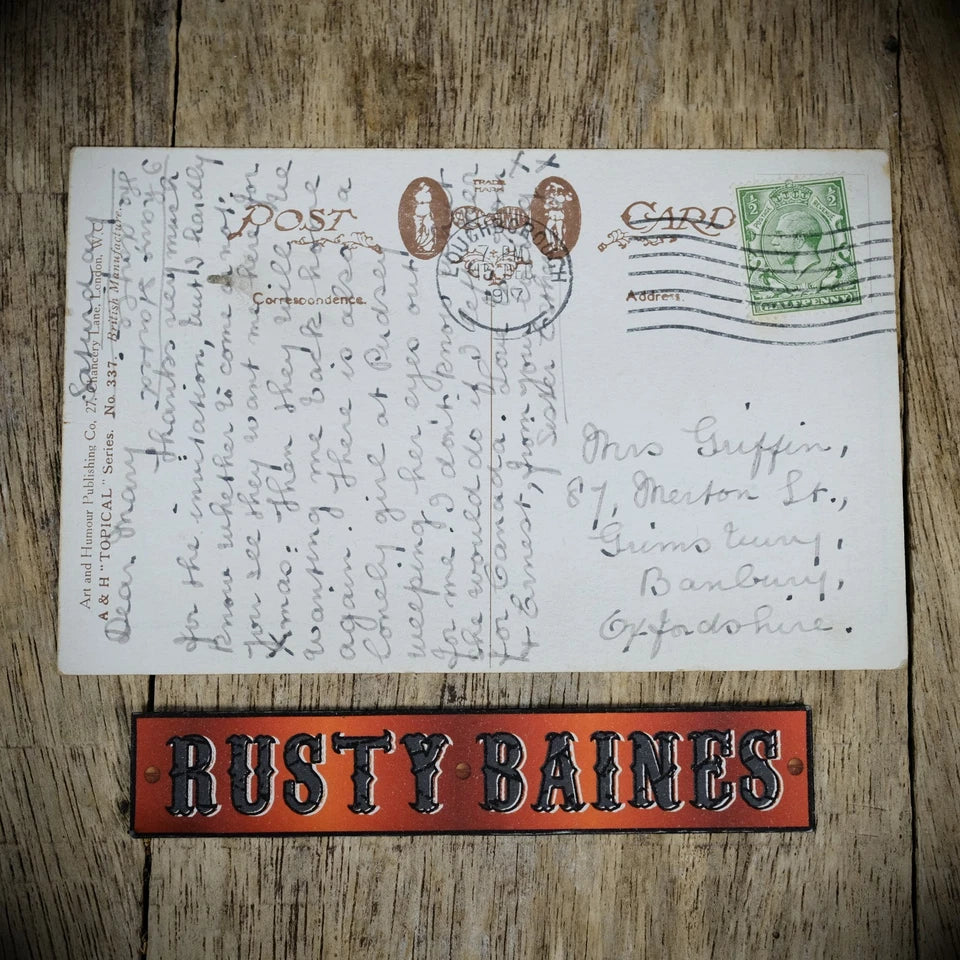 Art and Humour Publishing Co, 27, Chancery Lane, London, W.C.
A & H "TOPICAL" Series. No 337. British Manufacture.
POST CARD
TRADE
MARK
Correspondence.
Address.
LOUGHBOROUGH
1917
½ ½
HALFPENNY
Saturday
Dear Mary
Thanks very much
for the invitation, but I hardly
know whether to come or not
you see they want me here for
Xmas. Then they will be
wanting me back home
again. There is also a
lonely girl at Pudsey
weeping her eyes out
for me. I don't know what
she would do if I left
for Canada.
& Ernest, from your
Sister
x x
Mrs Griffin,
87, Merton St.,
Grimsbury,
Banbury,
Oxfordshire.
RUSTY BAINES